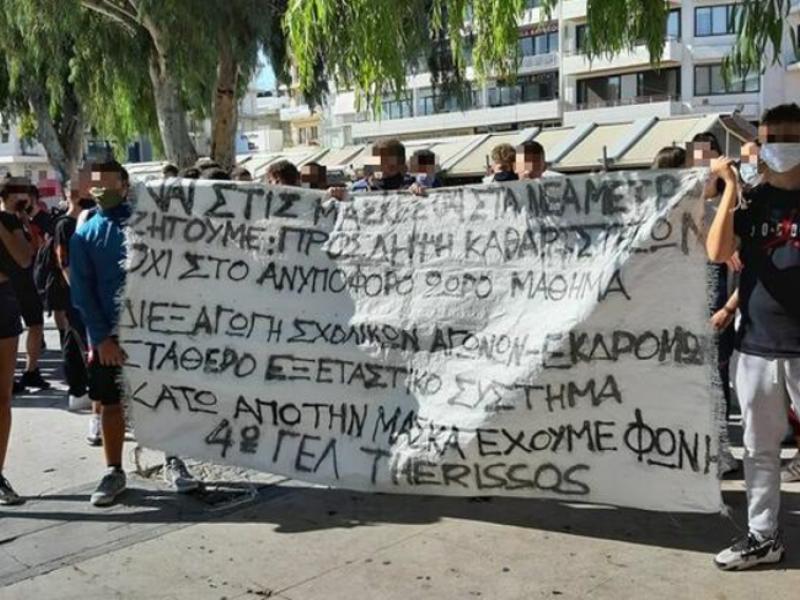 ΝΑΙ ΣΤΙΣ ΜΑΣΚΕΣ ΣΤΑ ΝΕΑ ΜΕΤΡ
ΖΗΤΟΥΜΕ: ΠΡΟΣΛΗΨΗ ΚΑΘΑΡΙΣΤΡΙΩΝ
ΟΧΙ ΣΤΟ ΑΝΥΠΟΦΟΡΟ 7ΩΡΟ ΜΑΘΗΜΑ
ΔΙΕΞΑΓΩΓΗ ΣΧΟΛΙΚΩΝ ΑΓΩΝΩΝ-ΕΚΔΡΟΜΩ
ΣΤΑΘΕΡΟ ΕΞΕΤΑΣΤΙΚΟ ΣΥΣΤΗΜΑ
ΚΑΤΩ ΑΠΟ ΤΗΝ ΜΑΣΚΑ ΕΧΟΥΜΕ ΦΩΝΗ
4ο ΓΕΛ THERISSOS